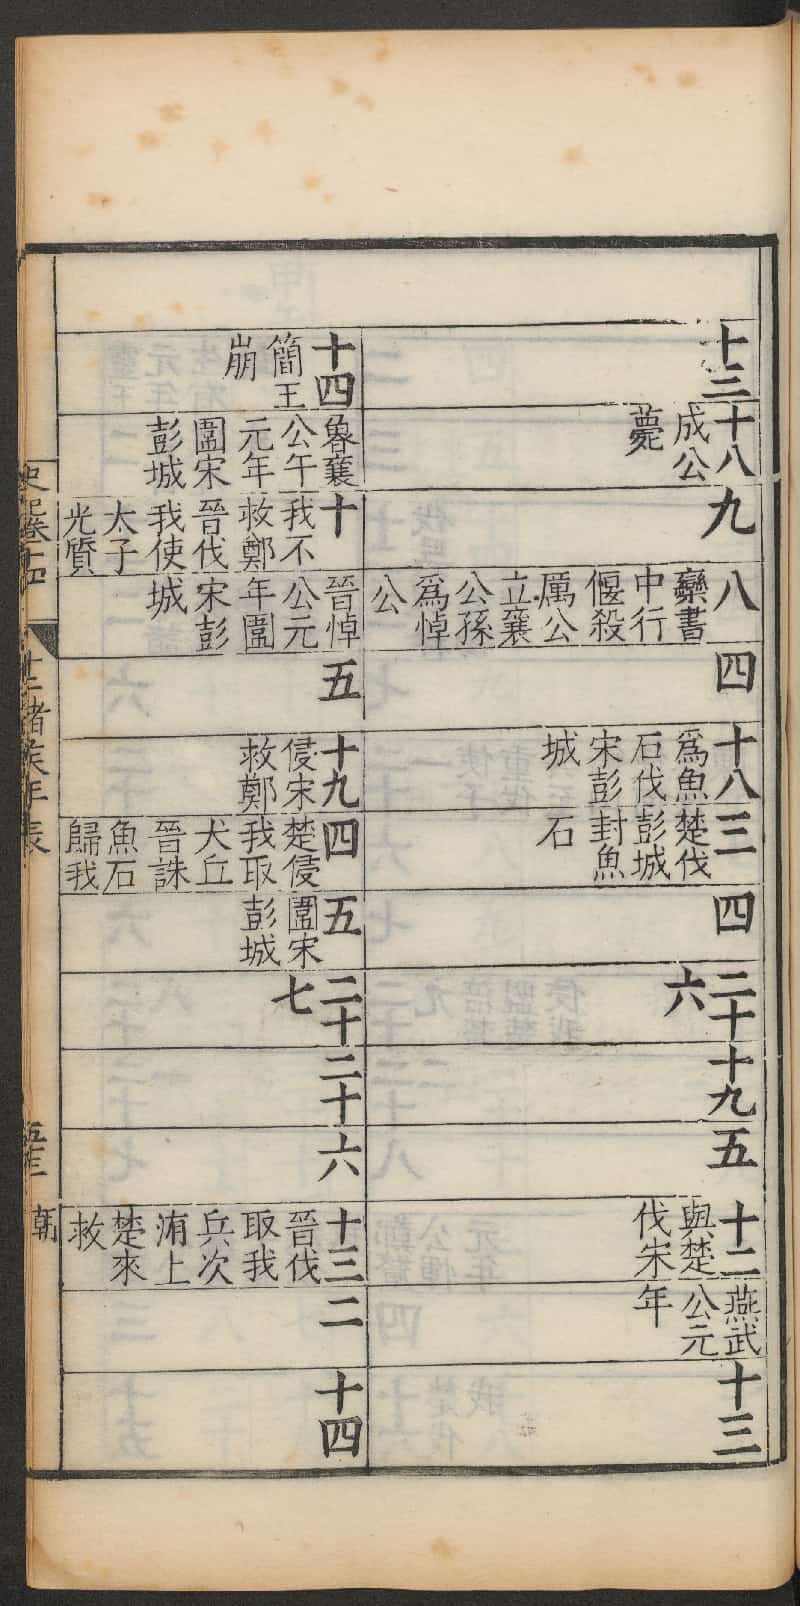 十三
十八
成公
薨
九
八
欒書
中行
偃殺
厲公
立襄
公孫
爲悼
公
四
十八
爲魚
石伐
宋彭
城
三
楚伐
彭城
封魚
石
四
二十
六
十九
五
十二
與楚
伐宋
燕武
公元
年
十三
十四
簡王
崩
魯襄
公午
元年
圍宋
彭城
十
我不
救鄭
晉伐
我使
太子
光質
晉悼
公元
年圍
宋彭
城
五
十九
侵宋
救鄭
四
楚侵
我取
犬丘
晉誅
魚石
歸我
五
圍宋
彭城
二十
七
二十
六
十三
晉伐
取我
兵次
洧上
楚來
救
二
十四
史記卷十四
十二諸侯年表